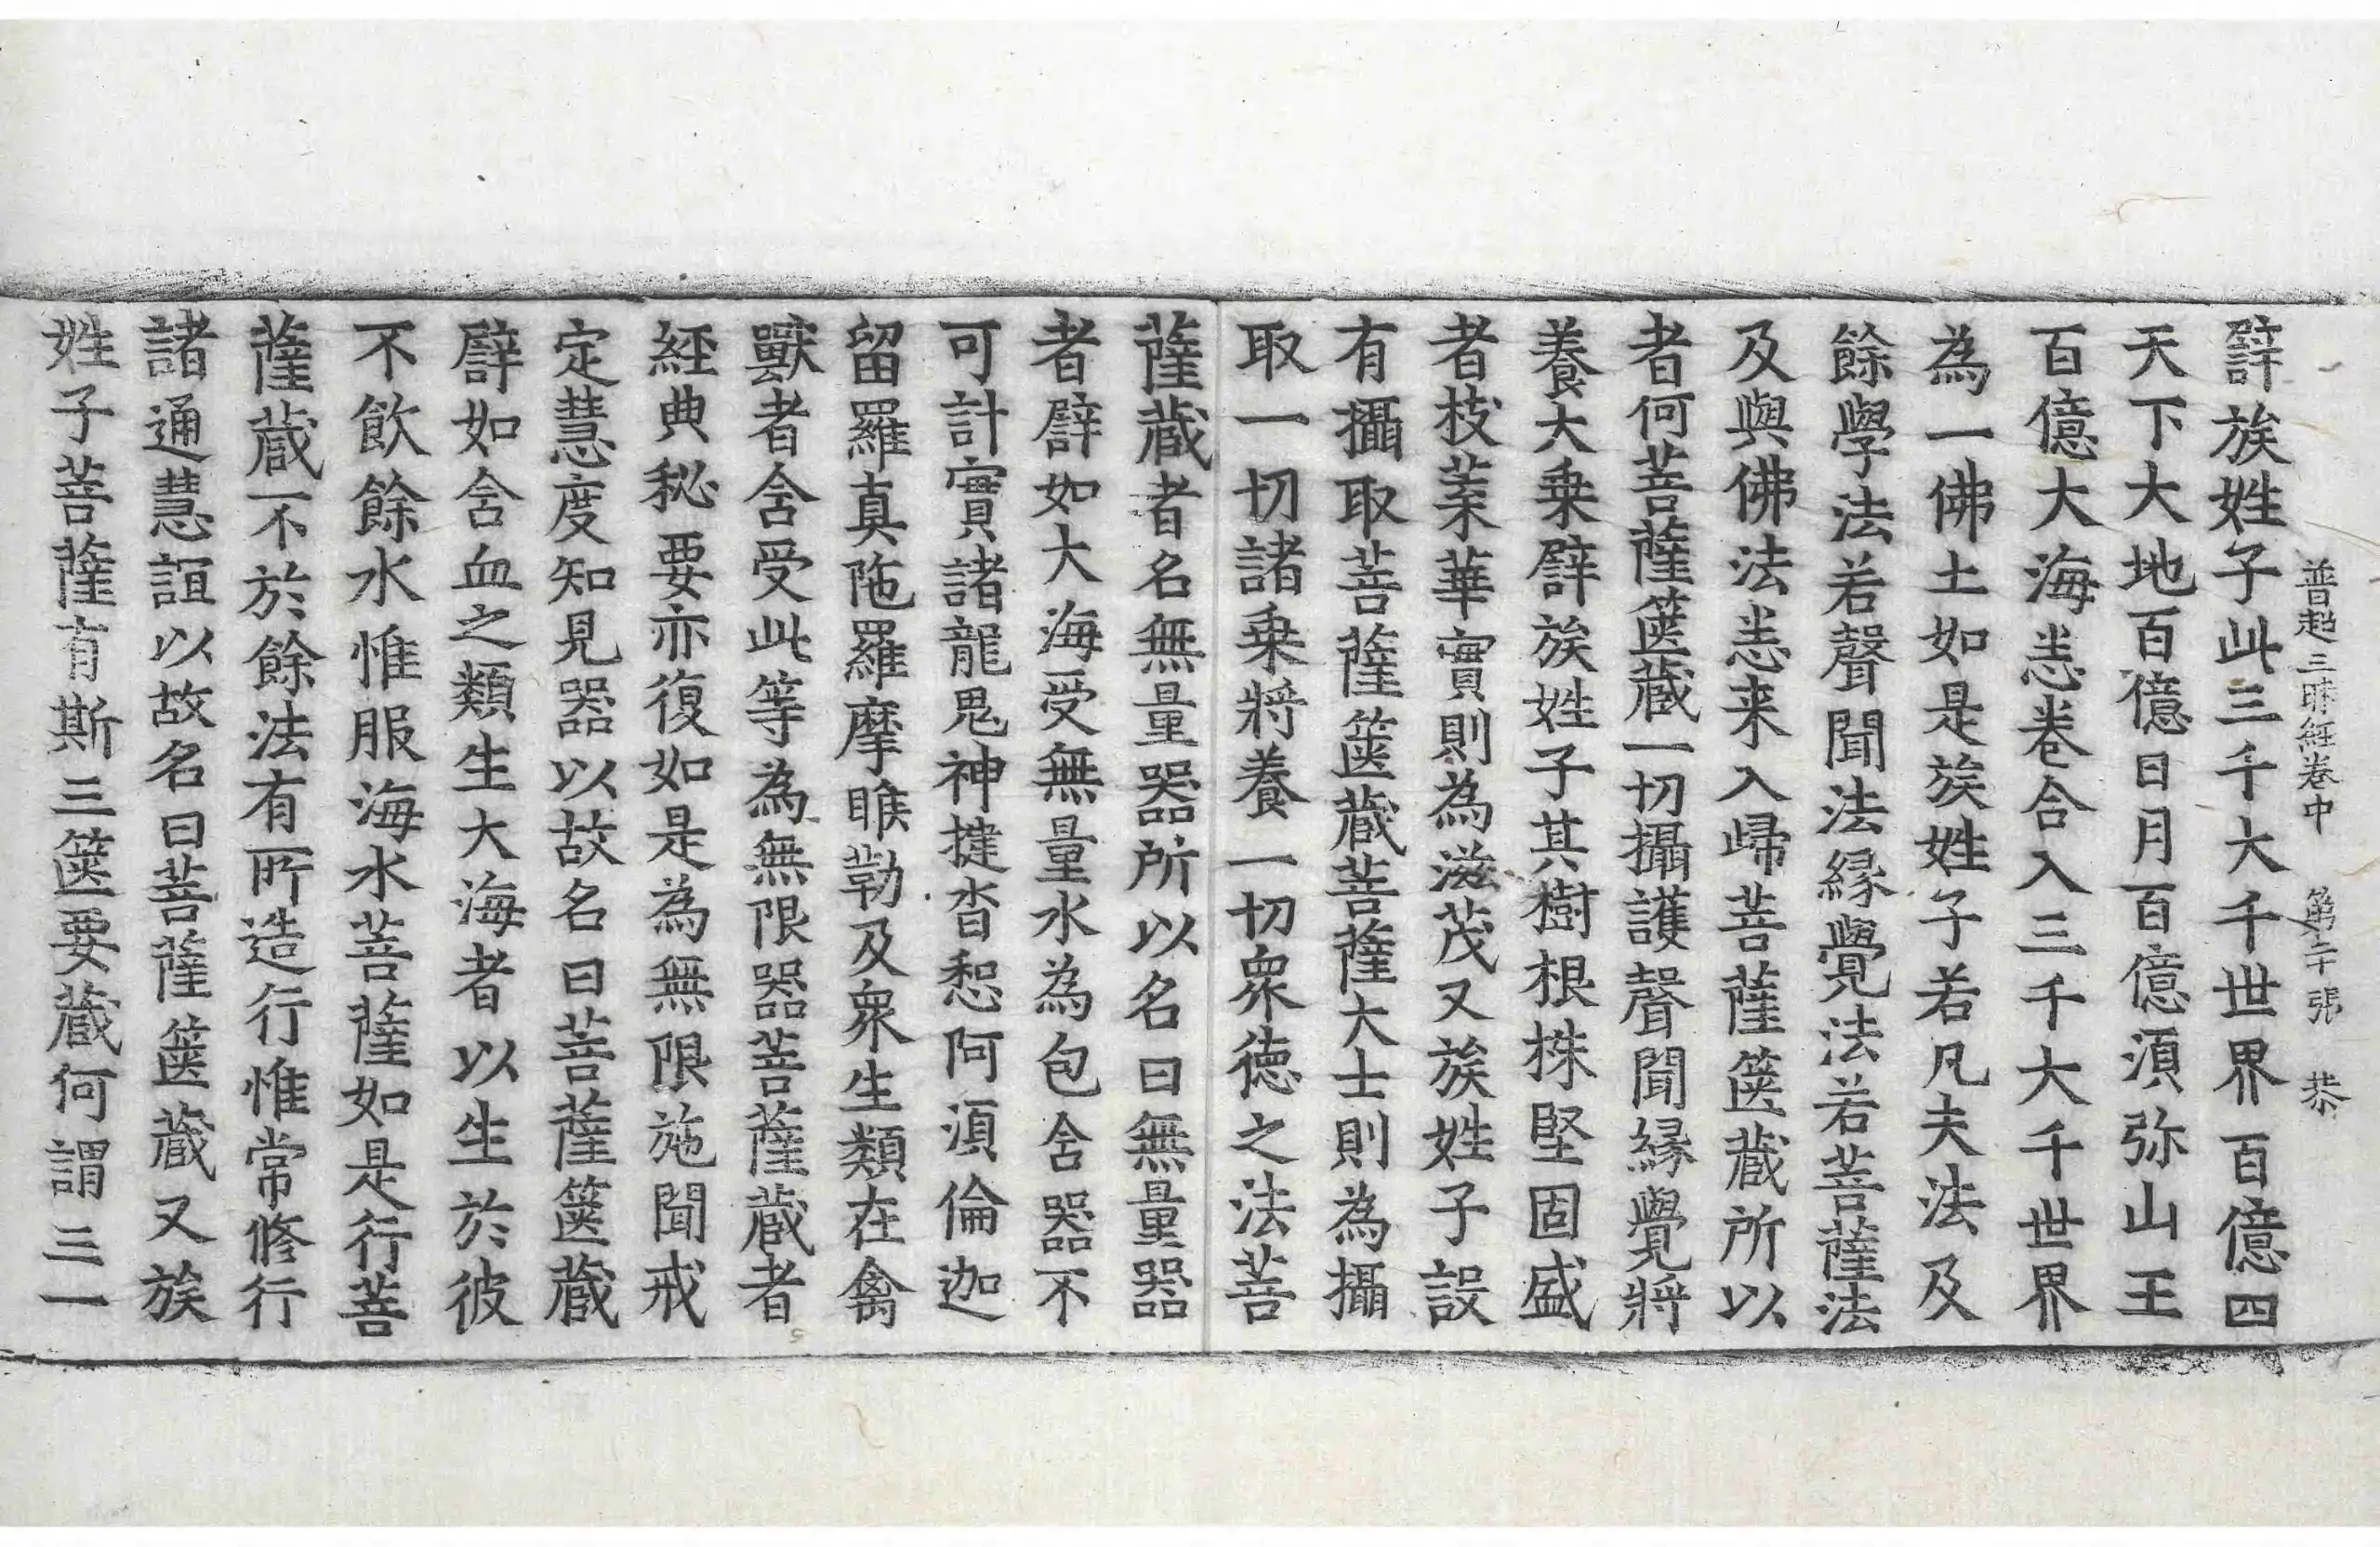 普超三昧經卷中 第二十張 恭
譬族姓子此三千大千世界百億四
天下大地百億日月百億須弥山王
百億大海悉卷合入三千大千世界
為一佛土如是族姓子若凡夫法及
餘學法若聲聞法縁覺法若菩薩法
及與佛法悉来入歸菩薩篋蔵所以
者何菩薩篋蔵一切攝護聲聞縁覺將
養大乗譬族姓子其樹根株堅固盛
者枝葉華實則為滋茂又族姓子設
有攝取菩薩篋蔵菩薩大士則為攝
取一切諸乗將養一切衆徳之法菩
薩蔵者名無量器所以名曰無量器
者譬如大海受無量水為包含器不
可計實諸龍鬼神揵沓惒阿須倫迦
留羅真陁羅摩睺勒及衆生類在禽
獸者含受此等為無限器菩薩蔵者
經典秘要亦復如是為無限施聞戒
定慧度知見器以故名曰菩薩篋蔵
譬如含血之類生大海者以生於彼
不飲餘水惟服海水菩薩如是行菩
薩蔵不於餘法有所造行惟常修行
諸通慧誼以故名曰菩薩篋蔵又族
姓子菩薩有斯三篋要蔵何謂三一